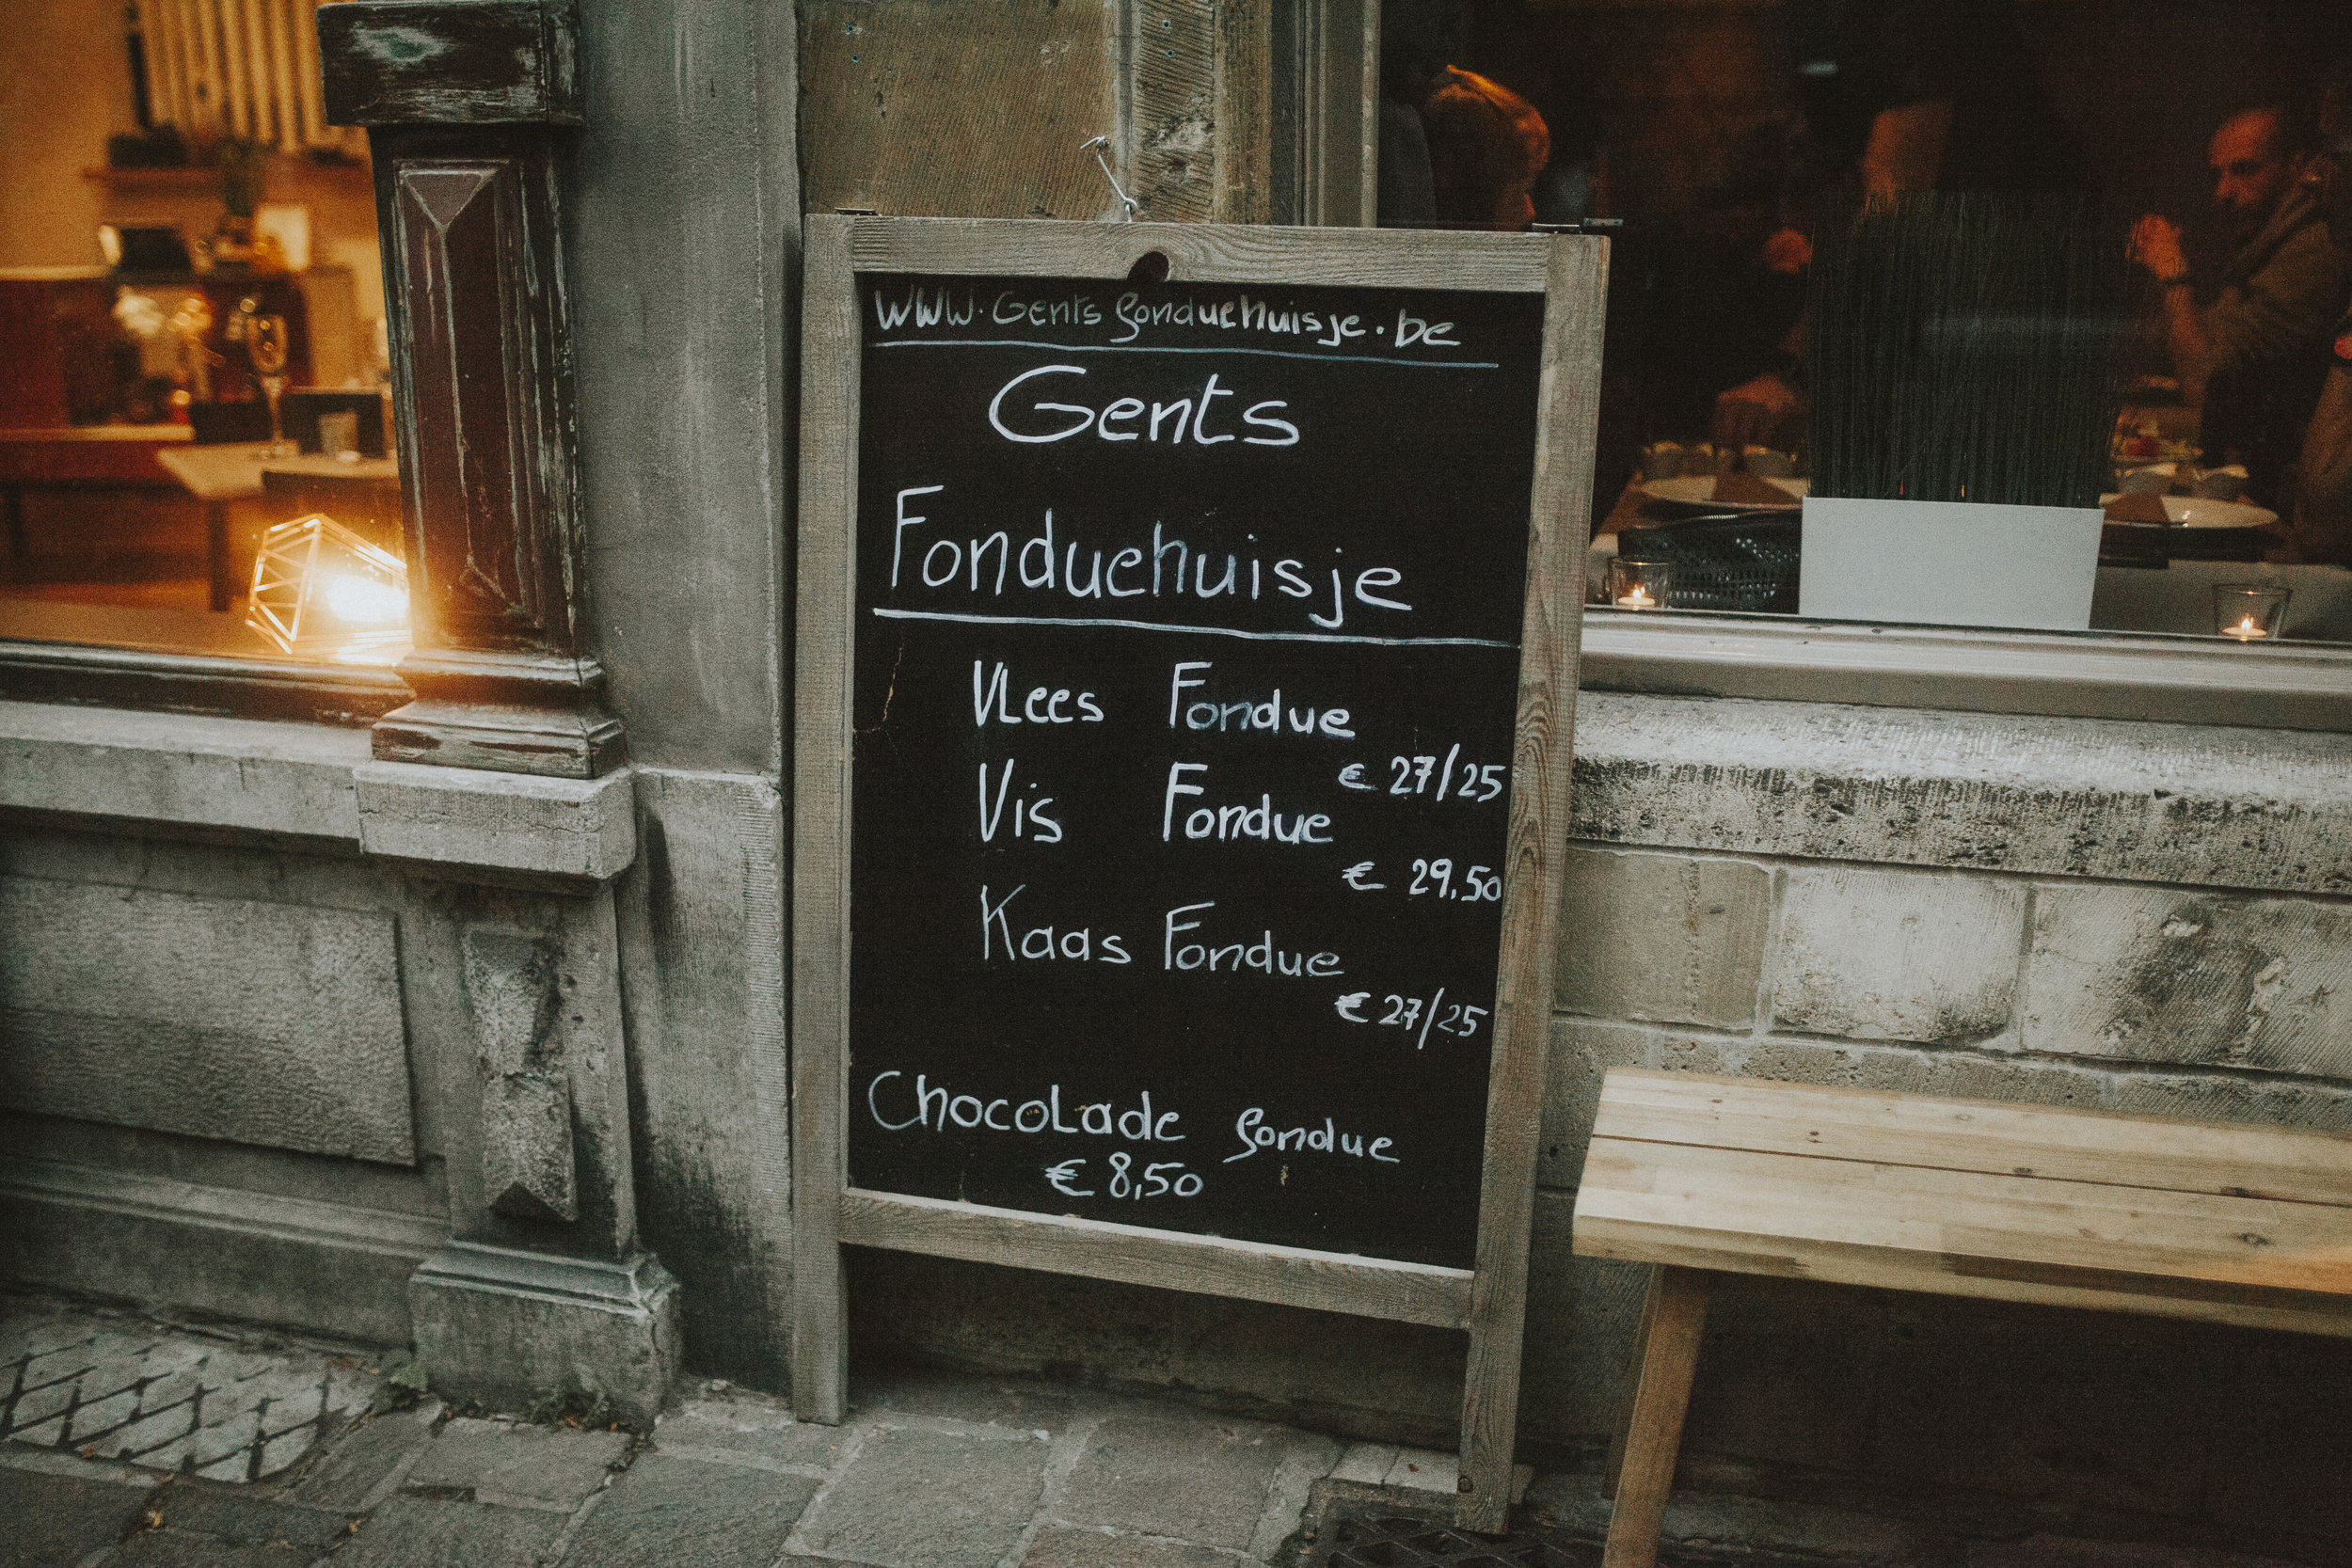 www.Gentsfonduehuisje.be
Gents
Fonduehuisje
Vlees Fondue
€ 27/25
Vis Fondue
€ 29,50
Kaas Fondue
€ 27/25
Chocolade fondue
€ 8,50